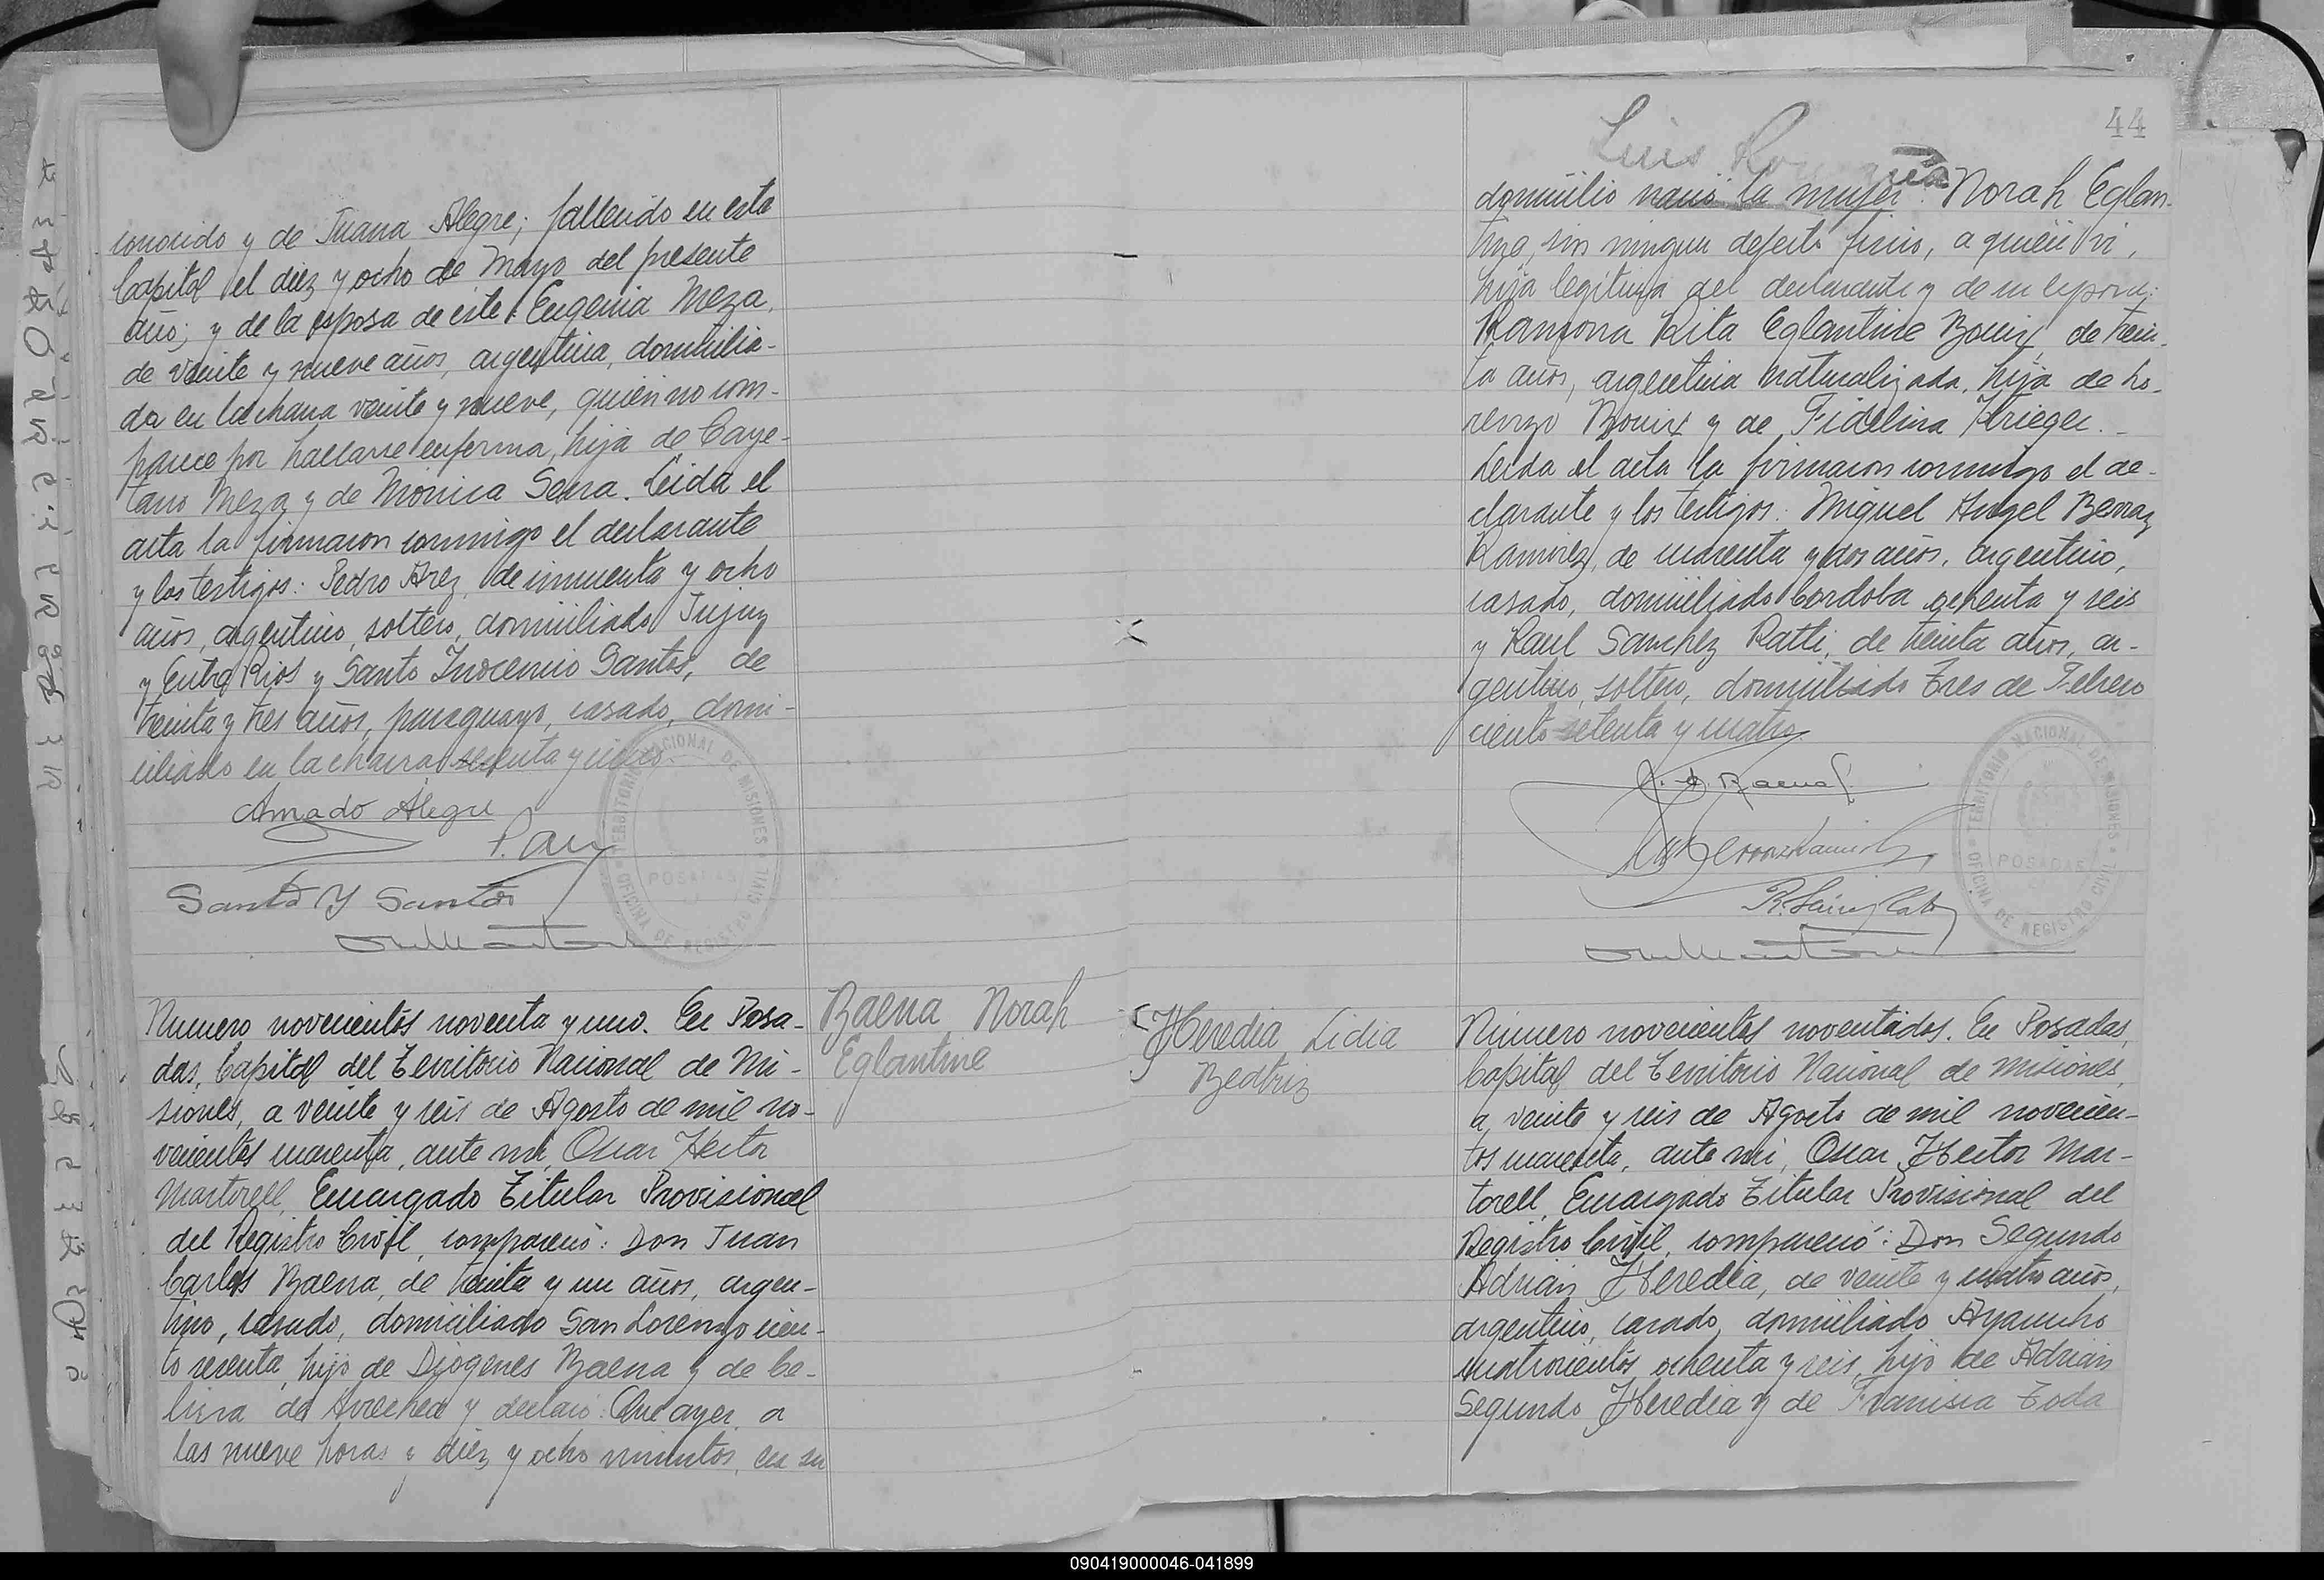 conocido y de Juana Alegre; fallecido en esta
Capital el diez y ocho de Mayo del presente
año; y de la esposa de este: Eugenia Meza,
de veinte y nueve años, argentina, domicilia-
da en la chacra veinte y nueve, quien no com-
parece por hallarse enferma, hija de Caye-
tano Meza y de Mónica Serra. Leida el
acta la firmaron conmigo el declarante
y los testigos: Pedro Arez, de cincuenta y ocho
años, argentino, soltero, domiciliado Jujuy
y Entre Rios y Santo Inocencio Santos, de
treinta y tres años, paraguayo, casado, domi-
ciliado en la chacra
Amado Alegre
Santo Y Santos
TERRITORIO NACIONAL DE MISIONES
POSADAS
OFICINA DE REGISTRO CIVIL
Numero novecientos noventa y uno. En Posa-
das, Capital del Territorio Nacional de Mi-
siones, a veinte y seis de Agosto de mil no-
vecientos cuarenta, ante mi, Oscar Hector
Martorell, Encargado Titular Provisional
del Registro Civil, compareció: Don Juan
Carlos Baena, de treinta y un años, argen-
tino, casado, domiciliado San Lorenzo cien-
to sesenta, hijo de Diogenes Baena y de Ce-
lina de Arrechea y declaró: Que ayer a
las nueve horas y diez y ocho minutos, en su
Baena Norah
Eglantine
44
Luis
domicilio nació la mujer: Norah Eglan-
tine, sin ningun defecto fisico, a quien vi,
hija legitima del declarante y de su esposa:
Ramona Rita Eglantine Bouix, de trein-
ta años, argentina naturalizada, hija de Lo-
renzo Bouix y de Fidelina Krieger.
Leida el acta la firmaron conmigo el de-
clarante y los testigos: Miguel Angel Berraz
Ramirez, de cuarenta y dos años, argentino,
casado, domiciliado Cordoba ochenta y seis
y Raul Sanchez Ratti, de treinta años, ar-
gentino, soltero, domiciliado Tres de Febrero
ciento setenta y cuatro.
TERRITORIO NACIONAL DE MISIONES
POSADAS
OFICINA DE REGISTRO CIVIL
Heredia Lidia
Beatriz
Número novecientos noventidos. En Posadas,
Capital del Territorio Nacional de Misiones,
a veinte y seis de Agosto de mil novecien-
tos cuarenta, ante mi, Oscar Hector Mar-
torell, Encargado Titular Provisional del
Registro Civil, compareció: Don Segundo
Adrian Heredia, de veinte y cuatro años,
argentino, casado, domiciliado Ayacucho
cuatrocientos ochenta y seis, hijo de Adrian
Segundo Heredia y de Francisca Toda
090419000046-041899